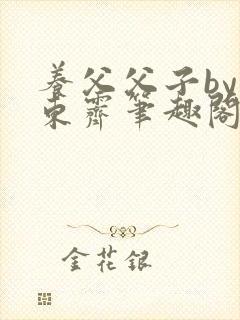 养父父子by
东霽笔趣阁
金花银